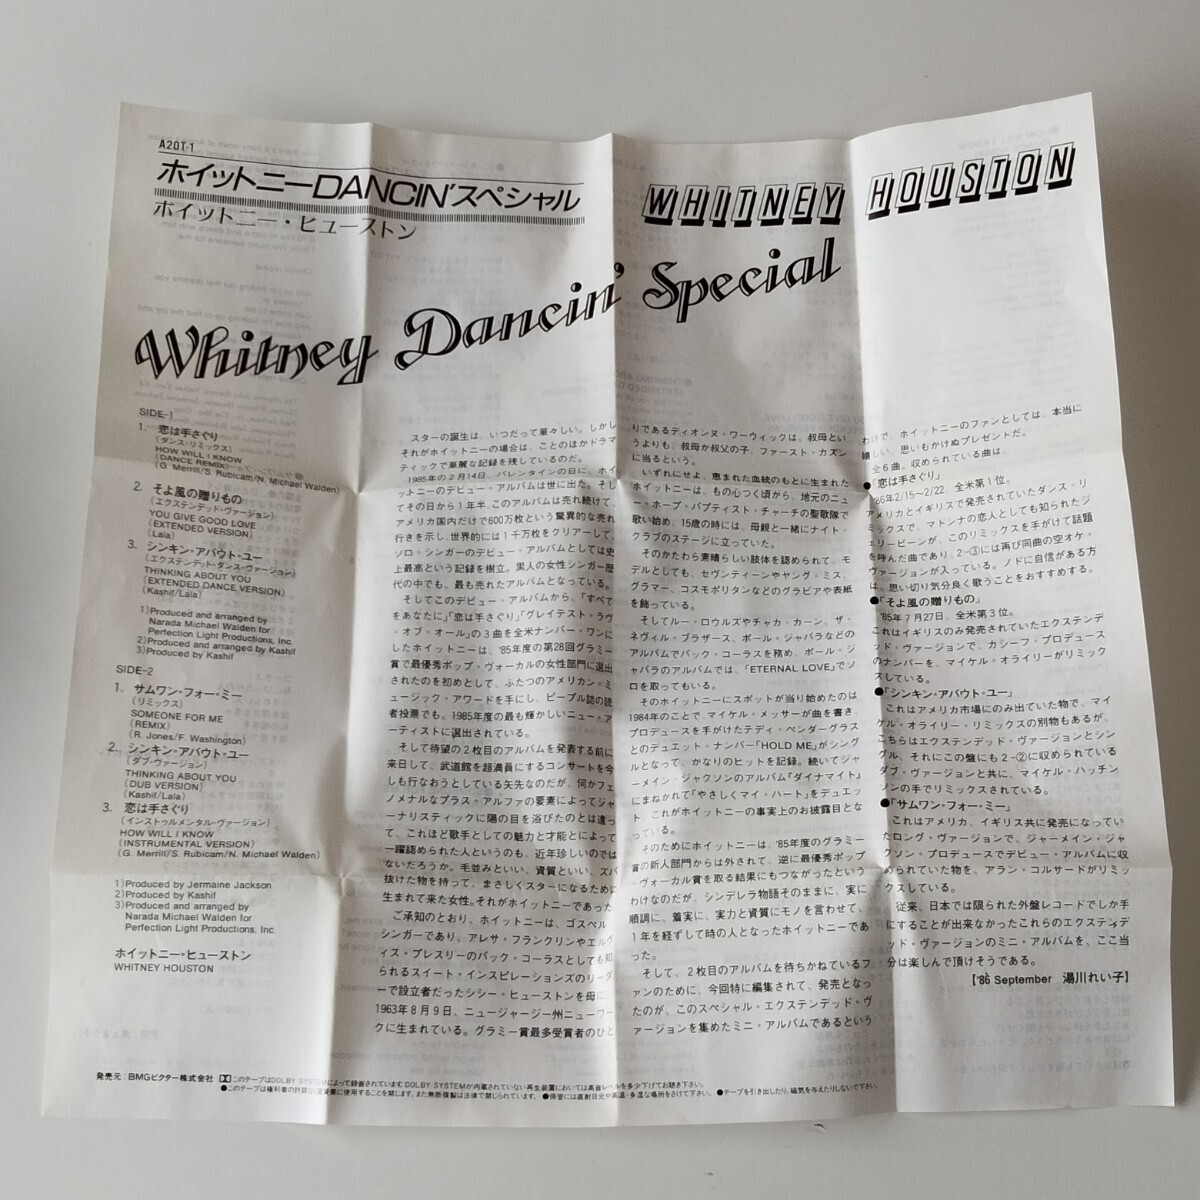 A20T-1
ホイットニーDANCIN'スペシャル
ホイットニー・ヒューストン
WHITNEY HOUSTON
Whitney Dancin' Special
SIDE-1
1. 恋は手さぐり
(ダンス・リミックス)
HOW WILL I KNOW
(DANCE REMIX)
(G. Merrill/S. Rubicam/N. Michael Walden)
2. そよ風の贈りもの
(エクステンデッド・ヴァージョン)
YOU GIVE GOOD LOVE
(EXTENDED VERSION)
(Lala)
3. シンキン・アバウト・ユー
(エクステンデット・ダンス・ヴァージョン)
THINKING ABOUT YOU
(EXTENDED DANCE VERSION)
(Kashif/Lala)
1)Produced and arranged by
Narada Michael Walden for
Perfection Light Productions, Inc.
2)Produced and arranged by Kashif
3)Produced by Kashif
SIDE-2
1. サムワン・フォー・ミー
(リミックス)
SOMEONE FOR ME
(REMIX)
(R. Jones/F. Washington)
2. シンキン・アバウト・ユー
(ダブ・ヴァージョン)
THINKING ABOUT YOU
(DUB VERSION)
(Kashif/Lala)
3. 恋は手さぐり
(インストゥルメンタル・ヴァージョン)
HOW WILL I KNOW
(INSTRUMENTAL VERSION)
(G. Merrill/S. Rubicam/N. Michael Walden)
1)Produced by Jermaine Jackson
2)Produced by Kashif
3)Produced and arranged by
Narada Michael Walden for
Perfection Light Productions, Inc.
ホイットニー・ヒューストン
WHITNEY HOUSTON
スターの誕生は、いつだって華々しい。しかし
それがホイットニーの場合は、ことのほかドラマ
ティックで華麗な記録を残しているのだ。
1985年の2月14日、バレンタインの日に、ホイ
ットニーのデビュー・アルバムは世に出た。そし
てその日から1年半、このアルバムは売れ続けて、
アメリカ国内だけで600万枚という驚異的な売れ
行きを示し、世界的には1千万枚をクリアーして、
ソロ・シンガーのデビュー・アルバムとしては史
上最高という記録を樹立。黒人の女性シンガー歴
代の中でも、最も売れたアルバムとなっている。
そしてこのデビュー・アルバムから、「すべて
をあなたに」「恋は手さぐり」「グレイテスト・ラヴ
・オブ・オール」の3曲を全米ナンバー・ワンに
したホイットニーは、'85年度の第28回グラミー
賞で最優秀ポップ・ヴォーカルの女性部門に選出
されたのを初めとして、ふたつのアメリカン・ミ
ュージック・アワードを手にし、ピープル誌の読
者投票でも、1985年度の最も輝かしいニュー・ア
ーティストに選出されている。
そして待望の2枚目のアルバムを発表する前に
来日して、武道館を超満員にするコンサートを今
しも行なおうとしている矢先なのだが、何かフェ
ノメナルなプラス・アルファの要素によってジャ
ーナリスティックに陽の目を浴びたのとは違っ
て、これほど歌手としての魅力と才能とによって
一躍認められた人というのも、近年珍しいのでは
ないだろうか。毛並みといい、資質といい、ズバ
抜けた物を持って、まさしくスターになるために
生まれて来た女性。それがホイットニーであった
ご承知のとおり、ホイットニーは、ゴスペル
シンガーであり、アレサ・フランクリンやエルヴ
ィス・プレスリーのバック・コーラスとしても知
られるスイート・インスピレーションズのリーダ
ーで設立者だったシシー・ヒューストンを母に、
1963年8月9日、ニュージャージー州ニューワー
クに生まれている。グラミー賞最多受賞者のひと
りであるディオンヌ・ワーウィックは、叔母とい
うよりも、叔母か叔父の子、ファースト・カズン
に当るという。
いずれにせよ、恵まれた血統のもとに生まれた
ホイットニーは、もの心つく頃から、地元のニュ
ー・ホープ・バプティスト・チャーチの聖歌隊で
歌い始め、15歳の時には、母親と一緒にナイト・
クラブのステージに立っていた。
そのかたわら素晴らしい肢体を認められて、モ
デルとしても、セヴンティーンやヤング・ミス、
グラマー、コスモポリタンなどのグラビアや表紙
を飾っている。
そしてルー・ロウルズやチャカ・カーン、ザ・
ネヴィル・ブラザース、ポール・ジャバラなどの
アルバムでバック・コーラスを務め、ポール・ジ
ャバラのアルバムでは、「ETERNAL LOVE」でソ
ロを取ってもいる。
そのホイットニーにスポットが当り始めたのは
1984年のことで、マイケル・メッサーが曲を書き、
プロデュースを手がけたテディ・ペンダーグラス
とのデュエット・ナンバー「HOLD ME」がシング
ルとなって、かなりのヒットを記録。続いてジャ
ーメイン・ジャクソンのアルバム「ダイナマイト」
にまねかれて「やさしくマイ・ハート」をデュエッ
ト、これがホイットニーの事実上のお披露目とな
っている。
そのためにホイットニーは、'85年度のグラミー
賞の新人部門からは外されて、逆に最優秀ポップ
・ヴォーカル賞を取る結果にもつながったという
わけなのだが、シンデレラ物語そのままに、実に
順調に、着実に、実力と資質にモノを言わせて、
1年を経ずして時の人となったホイットニーであ
った。
そして、2枚目のアルバムを待ちかねているフ
ァンのために、今回特に編集されて、発売となっ
たのが、このスペシャル・エクステンデッド・ヴ
ァージョンを集めたミニ・アルバムであるという
わけで、ホイットニーのファンとしては、本当に
嬉しい、思いもかけぬプレゼントだ。
全6曲。収められている曲は、
●「恋は手さぐり」
'86年2/15〜2/22、全米第1位。
アメリカとイギリスで発売されていたダンス・リ
ミックスで、マドンナの恋人としても知られたジ
ェリービーンが、このリミックスを手がけて話題
を呼んだ曲であり、2-③には再び同曲の空オケ・
ヴァージョンが入っている。ノドに自信がある方
は、思い切り気分良く歌うことをおすすめする。
●「そよ風の贈りもの」
'85年7月27日、全米第3位。
これはイギリスのみ発売されていたエクステンデ
ッド・ヴァージョンで、カシーフ・プロデュース
のナンバーを、マイケル・オライリーがリミック
スしている。
●「シンキン・アバウト・ユー」
これはアメリカ市場にのみ出ていた物で、マイ
ケル・オライリー・リミックスの別物もあるが、
こちらはエクステンデッド・ヴァージョンとシン
グル、それにこの盤にも2-②に収められている
ダブ・ヴァージョンと共に、マイケル・ハッチン
ソンの手でリミックスされている。
●「サムワン・フォー・ミー」
これはアメリカ、イギリス共に発売になってい
たロング・ヴァージョンで、ジャーメイン・ジャ
クソン・プロデュースでデビュー・アルバムに収
められていた物を、アラン・コルサードがリミッ
クスしている。
従来、日本では限られた外盤レコードでしか手
にすることが出来なかったこれらのエクステンデ
ッド・ヴァージョンのミニ・アルバムを、ここ当
分は楽しんで頂けそうである。
['86 September 湯川れい子]
発売元：BMGビクター株式会社 このテープはDOLBY SYSTEMによって録音されています DOLBY SYSTEMが内蔵されていない再生装置においては高音レベルを多少下げてお聴き下さい。
●このテープは権利者の許諾なく賃貸業に使用することを禁じます。また無断複製は法律で禁じられています。 ●保管には直射日光や高温・多湿な場所をさけて下さい。 ●テープを引き出したり、磁気を与えたりしないで下さい。